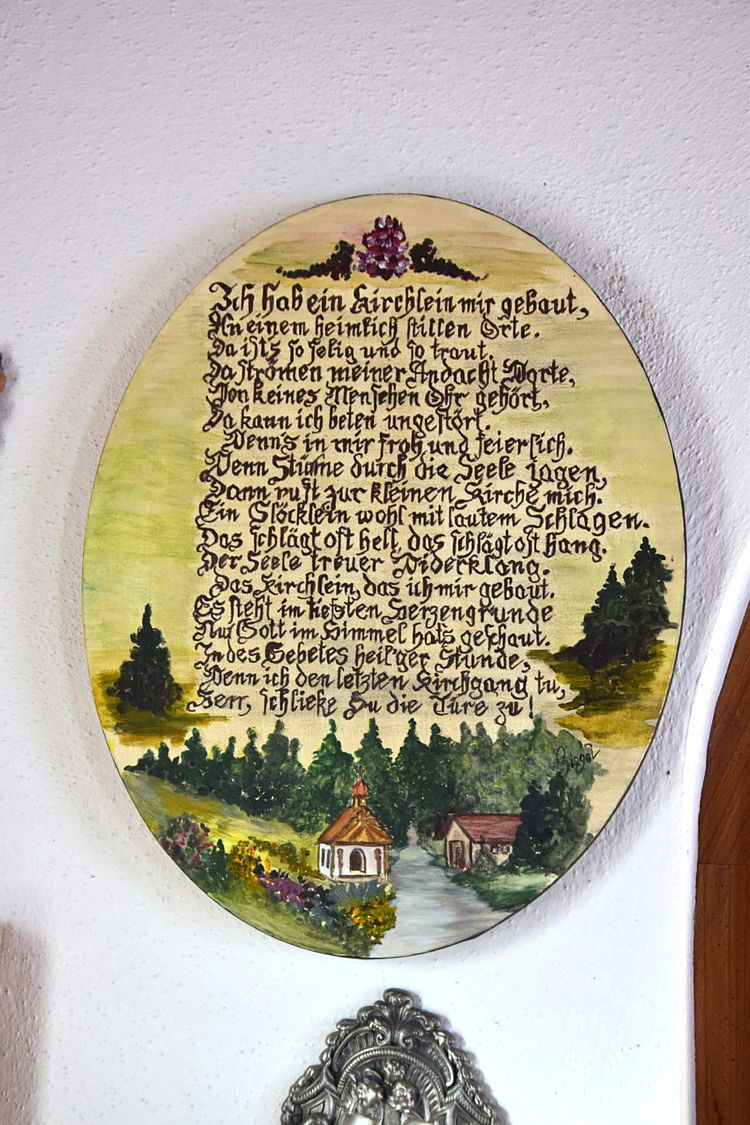 Ich hab ein Kirchlein mir gebaut,
An einem heimlich stillen Orte.
Da ists so selig und so traut,
Da strömen meiner Andacht Worte,
Von keines Menschen Ohr gehört,
Da kann ich beten ungestört.
Denn's in mir froh und feierlich.
Wenn Stürme durch die Seele jagen,
Dann ruft zur kleinen Kirche mich.
Ein Glöcklein wohl mit lautem Schlagen.
Das schlägt oft hell, das schlägt oft bang.
Der Seele treuer Widerklang.
Das Kirchlein, das ich mir gebaut.
Es steht im tiefsten Herzengrunde
Nur Gott im Himmel hats geschaut.
In des Gebetes heil'ger Stunde,
Wenn ich den letzten Kirchgang tu,
Herr, schließe Du die Türe zu!